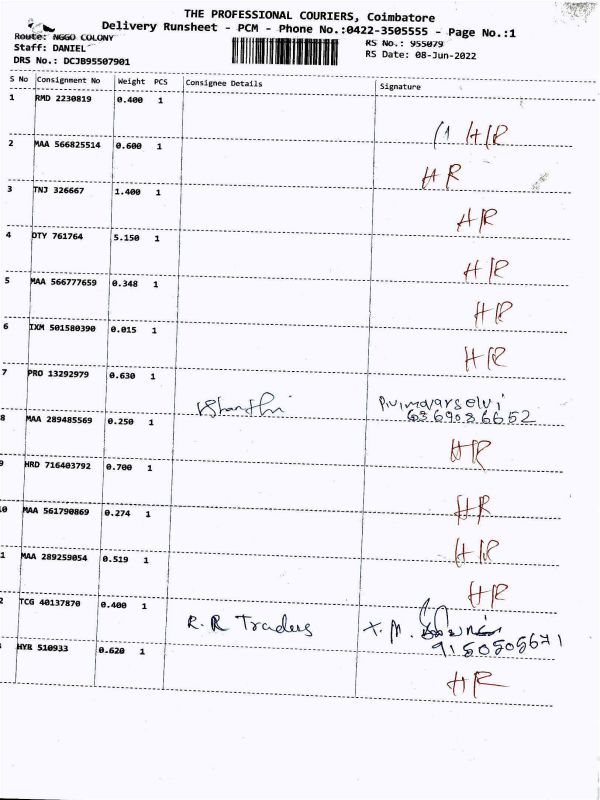 THE PROFESSIONAL COURIERS, Coimbatore
Delivery Runsheet - PCM - Phone No.:0422-3505555 - Page No.:1
Route: NGGO COLONY
Staff: DANIEL
DRS No.: DCJB95507901
RS No.: 955079
RS Date: 08-Jun-2022
S No Consignment No Weight PCS Consignee Details Signature
1 RMD 2230819 0.400 1
HR
2 MAA 566825514 0.600 1
HR
3 TNJ 326667 1.400 1
HR
4 OTY 761764 5.150 1
HR
5 MAA 566777659 0.348 1
HR
6 IXM 501580390 0.015 1
HR
7 PRO 13292979 0.630 1
Shanthi
6369036652
8 MAA 289485569 0.250 1
HR
9 HRD 716403792 0.700 1
HR
0 MAA 561790869 0.274 1
HR
1 MAA 289259054 0.519 1
HR
2 TCG 40137870 0.400 1
R.R Traders
9150505671
HYR 510933 0.620 1
HR